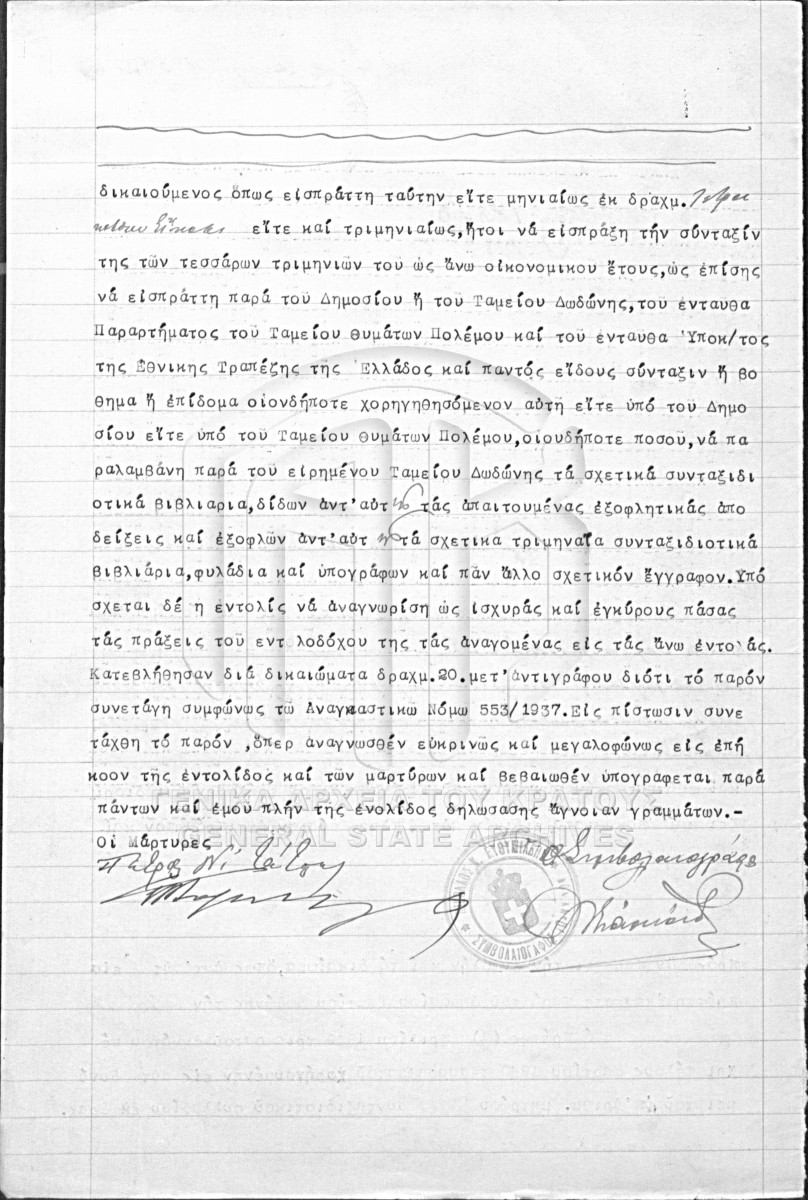 δικαιούμενος ὅπως εἰσπράττη ταύτην εἴτε μηνιαίως ἐκ δραχμ.
εἴτε καί τριμηνιαίως,ἤτοι νά εἰσπράξη τήν σύνταξίν
της τῶν τεσσάρων τριμηνιῶν του ὡς ἄνω οἰκονομικου ἔτους,ὡς ἐπίσης
νά εἰσπράττη παρά τοῦ Δημοσίου ἤ τοῦ Ταμείου Δωδώνης,τοῦ ἐνταυθα
Παραρτήματος τοῦ Ταμείου θυμάτων Πολέμου καί τοῦ ἐνταυθα Ὑποκ/τος
της Ἐθνικης Τραπέζης τῆς Ἑλλάδος καί παντός εἴδους σύνταξιν ἤ βο
θημα ἤ ἐπίδομα οἱονδήποτε χορηγηθησόμενον αὐτῆ εἴτε ὑπό τοῦ Δημο
σίου εἴτε ὑπό τοῦ Ταμείου θυμάτων Πολέμου,οἱουδήποτε ποσοῦ,νά πα
ραλαμβάνη παρά τοῦ εἰρημένου Ταμείου Δωδώνης τά σχετικά συνταξιδι
οτικά βιβλιαρια,δίδων ἀντ'αὐτ τάς ἀπαιτουμένας ἐξοφλητικάς ἀπο
δείξεις καί ἐξοφλῶν ἀντ'αὐτ τά σχετικα τριμηναῖα συνταξιδιοτικά
βιβλιάρια,φυλάδια καί ὑπογράφων καί πᾶν ἄλλο σχετικόν ἔγγραφον.Ὑπό
σχεται δέ η ἐντολίς νά ἀναγνωρίση ὡς ἰσχυράς καί ἐγκύρους πάσας
τάς πράξεις τοῦ εντ λοδόχου της τάς ἀναγομένας εἰς τάς ἄνω ἐντο ἀς.
Κατεβλήθησαν διά δικαιώματα δραχμ.20.μετ'ἀντιγράφου διότι τό παρόν
συνετάγη συμφώνως τῶ Ἀναγκαστικῶ Νόμω 553/1937.Εἰς πίστωσιν συνε
τάχθη τό παρόν ,ὅπερ ἀναγνωσθέν εὐκρινῶς καί μεγαλοφώνως εἰς ἐπή
κοον τῆς ἐντολίδος καί τῶν μαρτύρων καί βεβαιωθέν ὑπογράφεται παρά
πάντων καί ἐμοῦ πλήν τῆς ἐνολίδος δηλωσασης ἄγνοιαν γραμμάτων.-
ΓΕΝΙΚΑ ΑΡΧΕΙΑ ΤΟΥ ΚΡΑΤΟΥΣ
GENERAL STATE ARCHIVES
Οἱ Μάρτυρες
Ὁ Συμβολαιογράφος
ΣΥΜΒΟΛΑΙΟΓΡΑΦΟΣ